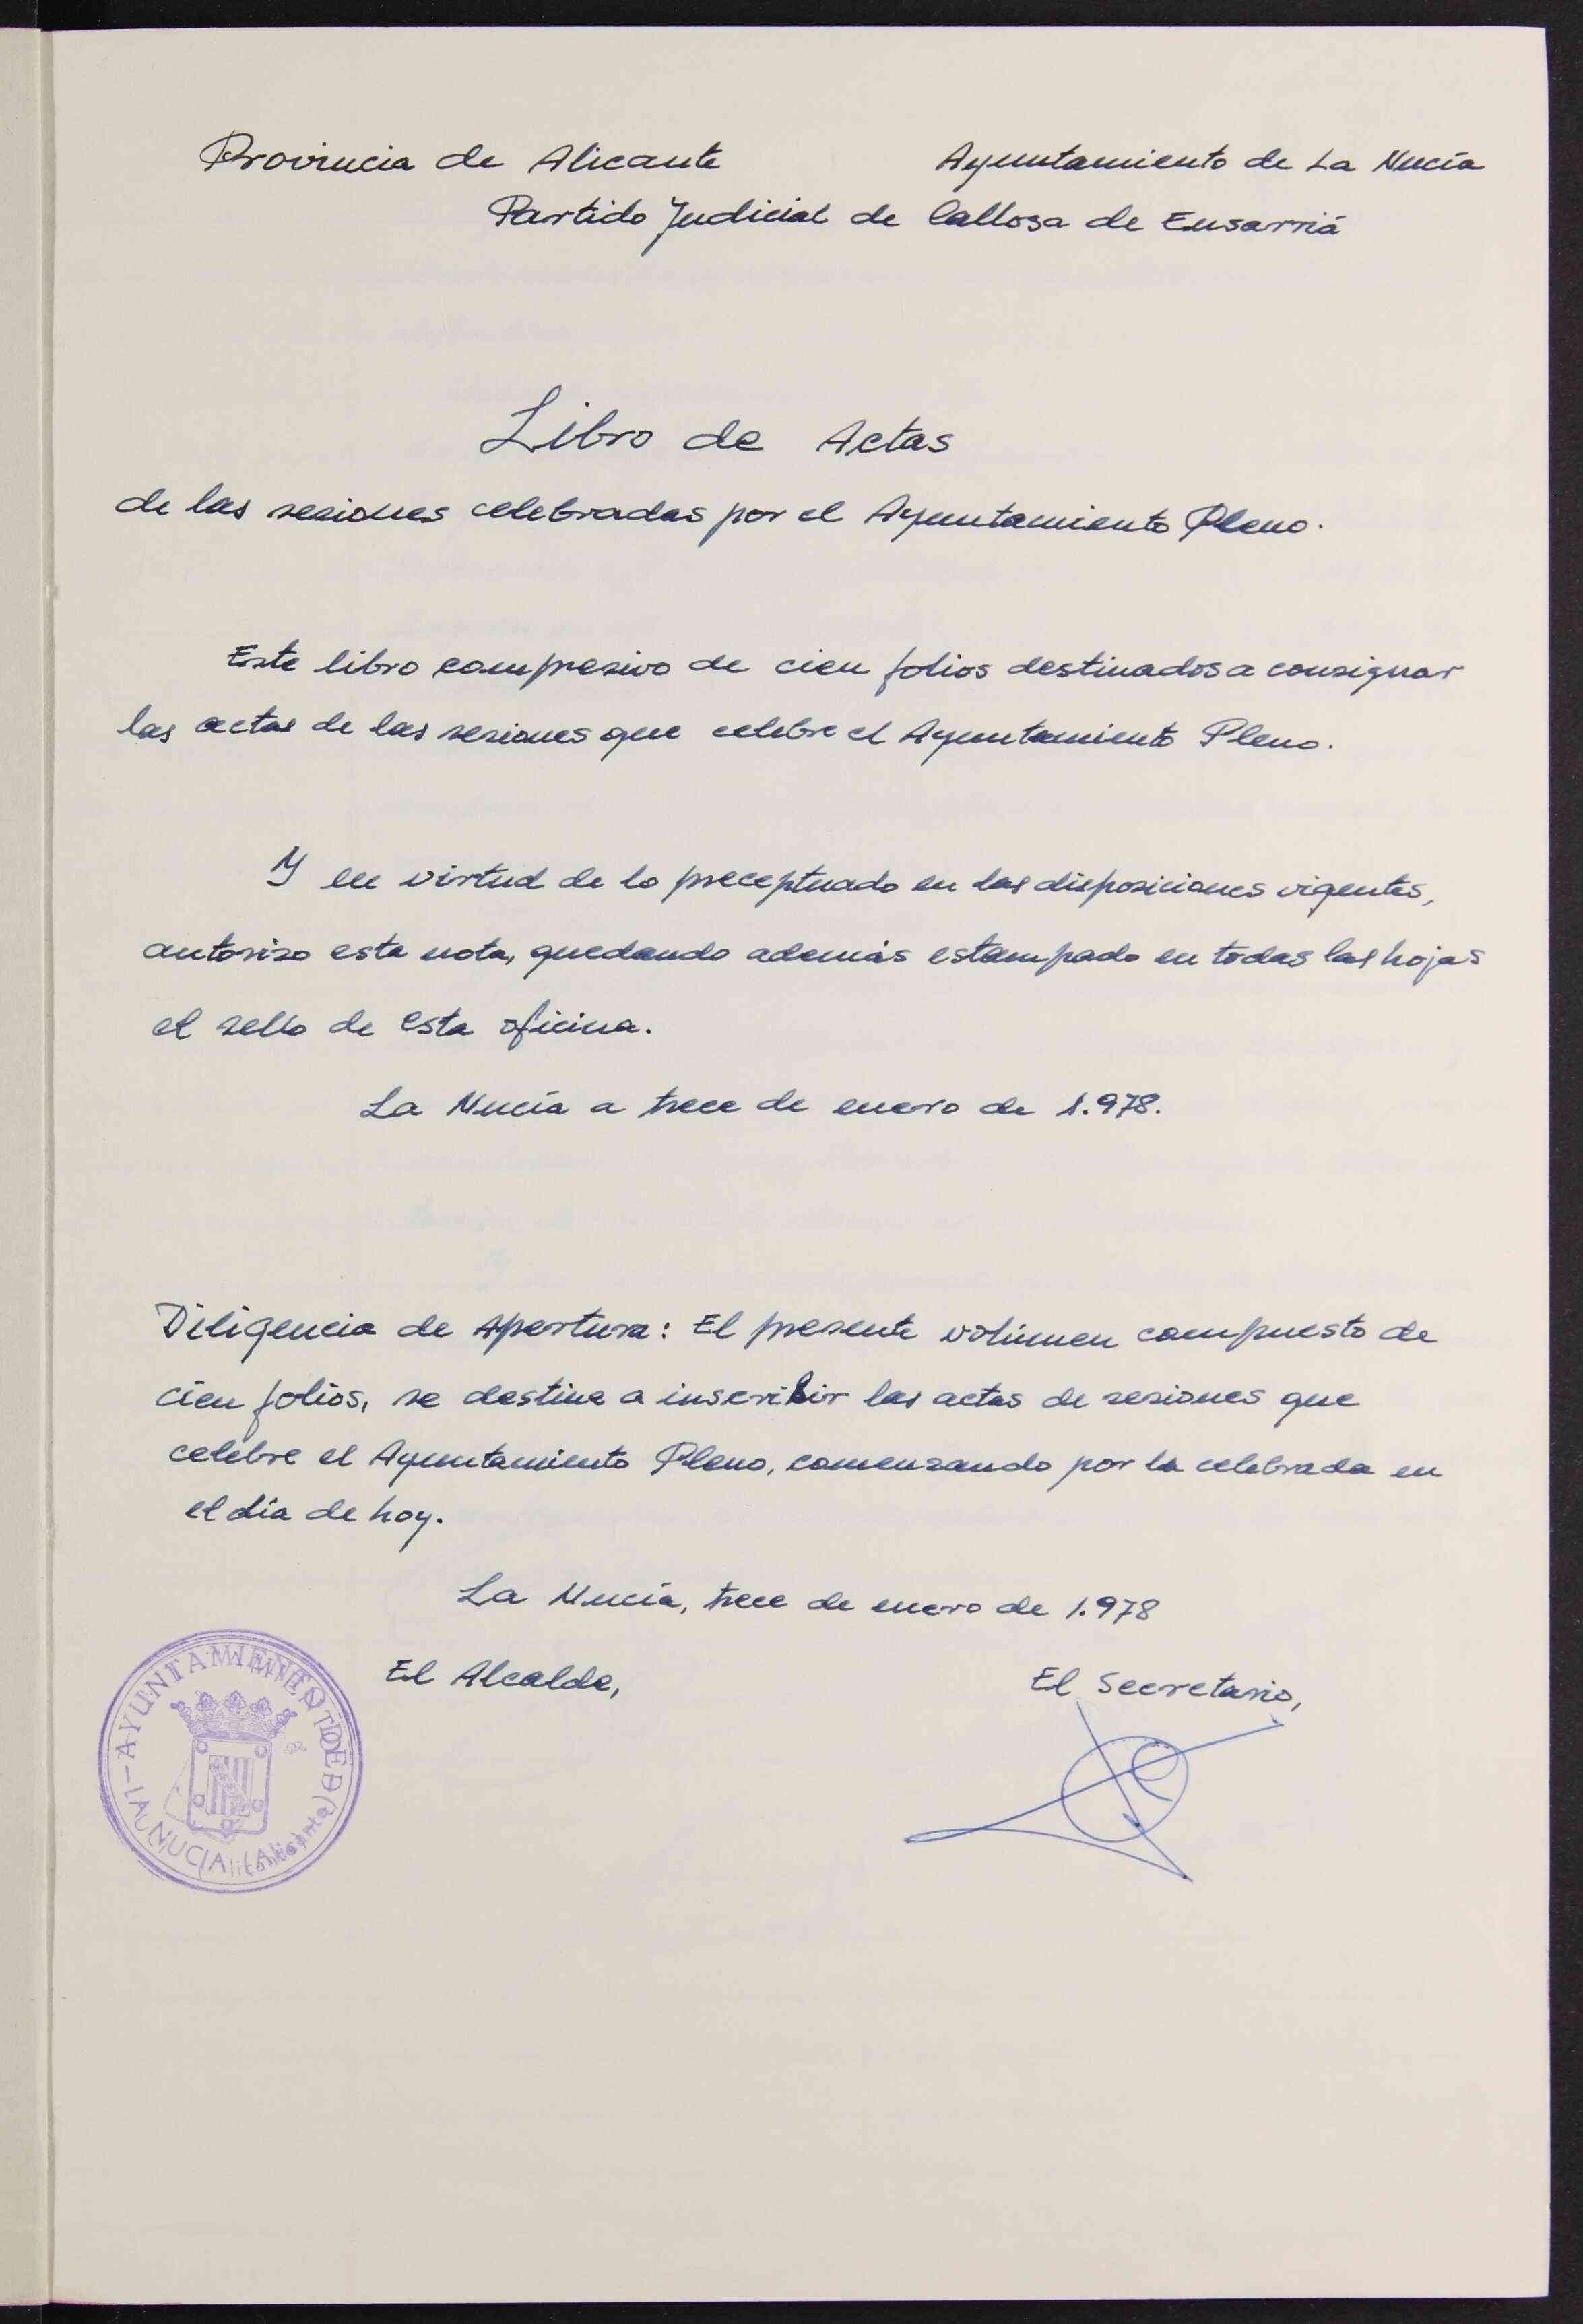 Provincia de Alicante Ayuntamiento de La Nucía
Partido Judicial de Callosa de Ensarriá
Libro de Actas
de las sesiones celebradas por el Ayuntamiento Pleno.
Este libro compresivo de cien folios destinados a consignar
las actas de las sesiones que celebre el Ayuntamiento Pleno.
Y en virtud de lo preceptuado en las disposiciones vigentes,
autorizo esta nota, quedando además estampado en todas las hojas
el sello de esta oficina.
La Nucía a trece de enero de 1.978.
Diligencia de Apertura: El presente volúmen compuesto de
cien folios, se destina a inscribir las actas de sesiones que
celebre el Ayuntamiento Pleno, comenzando por la celebrada en
el día de hoy.
La Nucía, trece de enero de 1.978
El Alcalde, El Secretario,
AYUNTAMIENTO DE
LA NUCIA (Alicante)